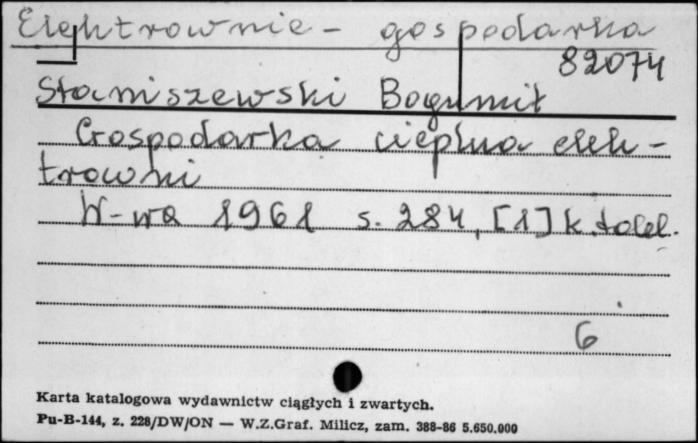 Elektrownie - gospodarka
82074
Staniszewski Bogumił
Gospodarka cieplna elek-
trowni
W-wa 1961 s. 284, [1] k. tabl.
6
Karta katalogowa wydawnictw ciągłych i zwartych.
Pu-B-144, z. 228/DW/ON — W.Z.Graf. Milicz, zam. 388-86 5.650.000